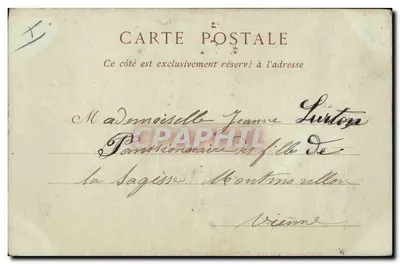 CARTE POSTALE
Ce côté est exclusivement réservé à l'adresse
Mademoiselle Jeanne Surton
CPARAMA
Pansionnaire des filles de
la Sagesse Montmorillon
Vienne